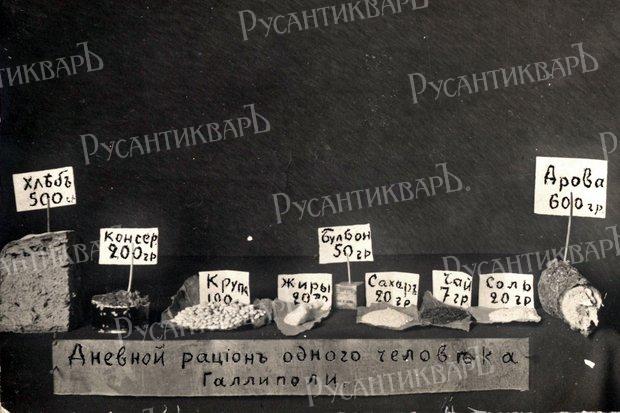 РусантикварЪ
РусантикварЪ
РусантикварЪ
РусантикварЪ
РусантикварЪ.
РусантикварЪ
РусантикварЪ
РусантикварЪ
РусантикварЪ
Хлѣбъ
500 г
Консер
200 гр
Крупа
100
Жиры
20 гр
Булвон
50 гр
Сахаръ
20 гр
Чай
7 гр
Соль
20 гр
Дрова
600 гр
Дневной раціонъ одного человѣка
Галлиполи